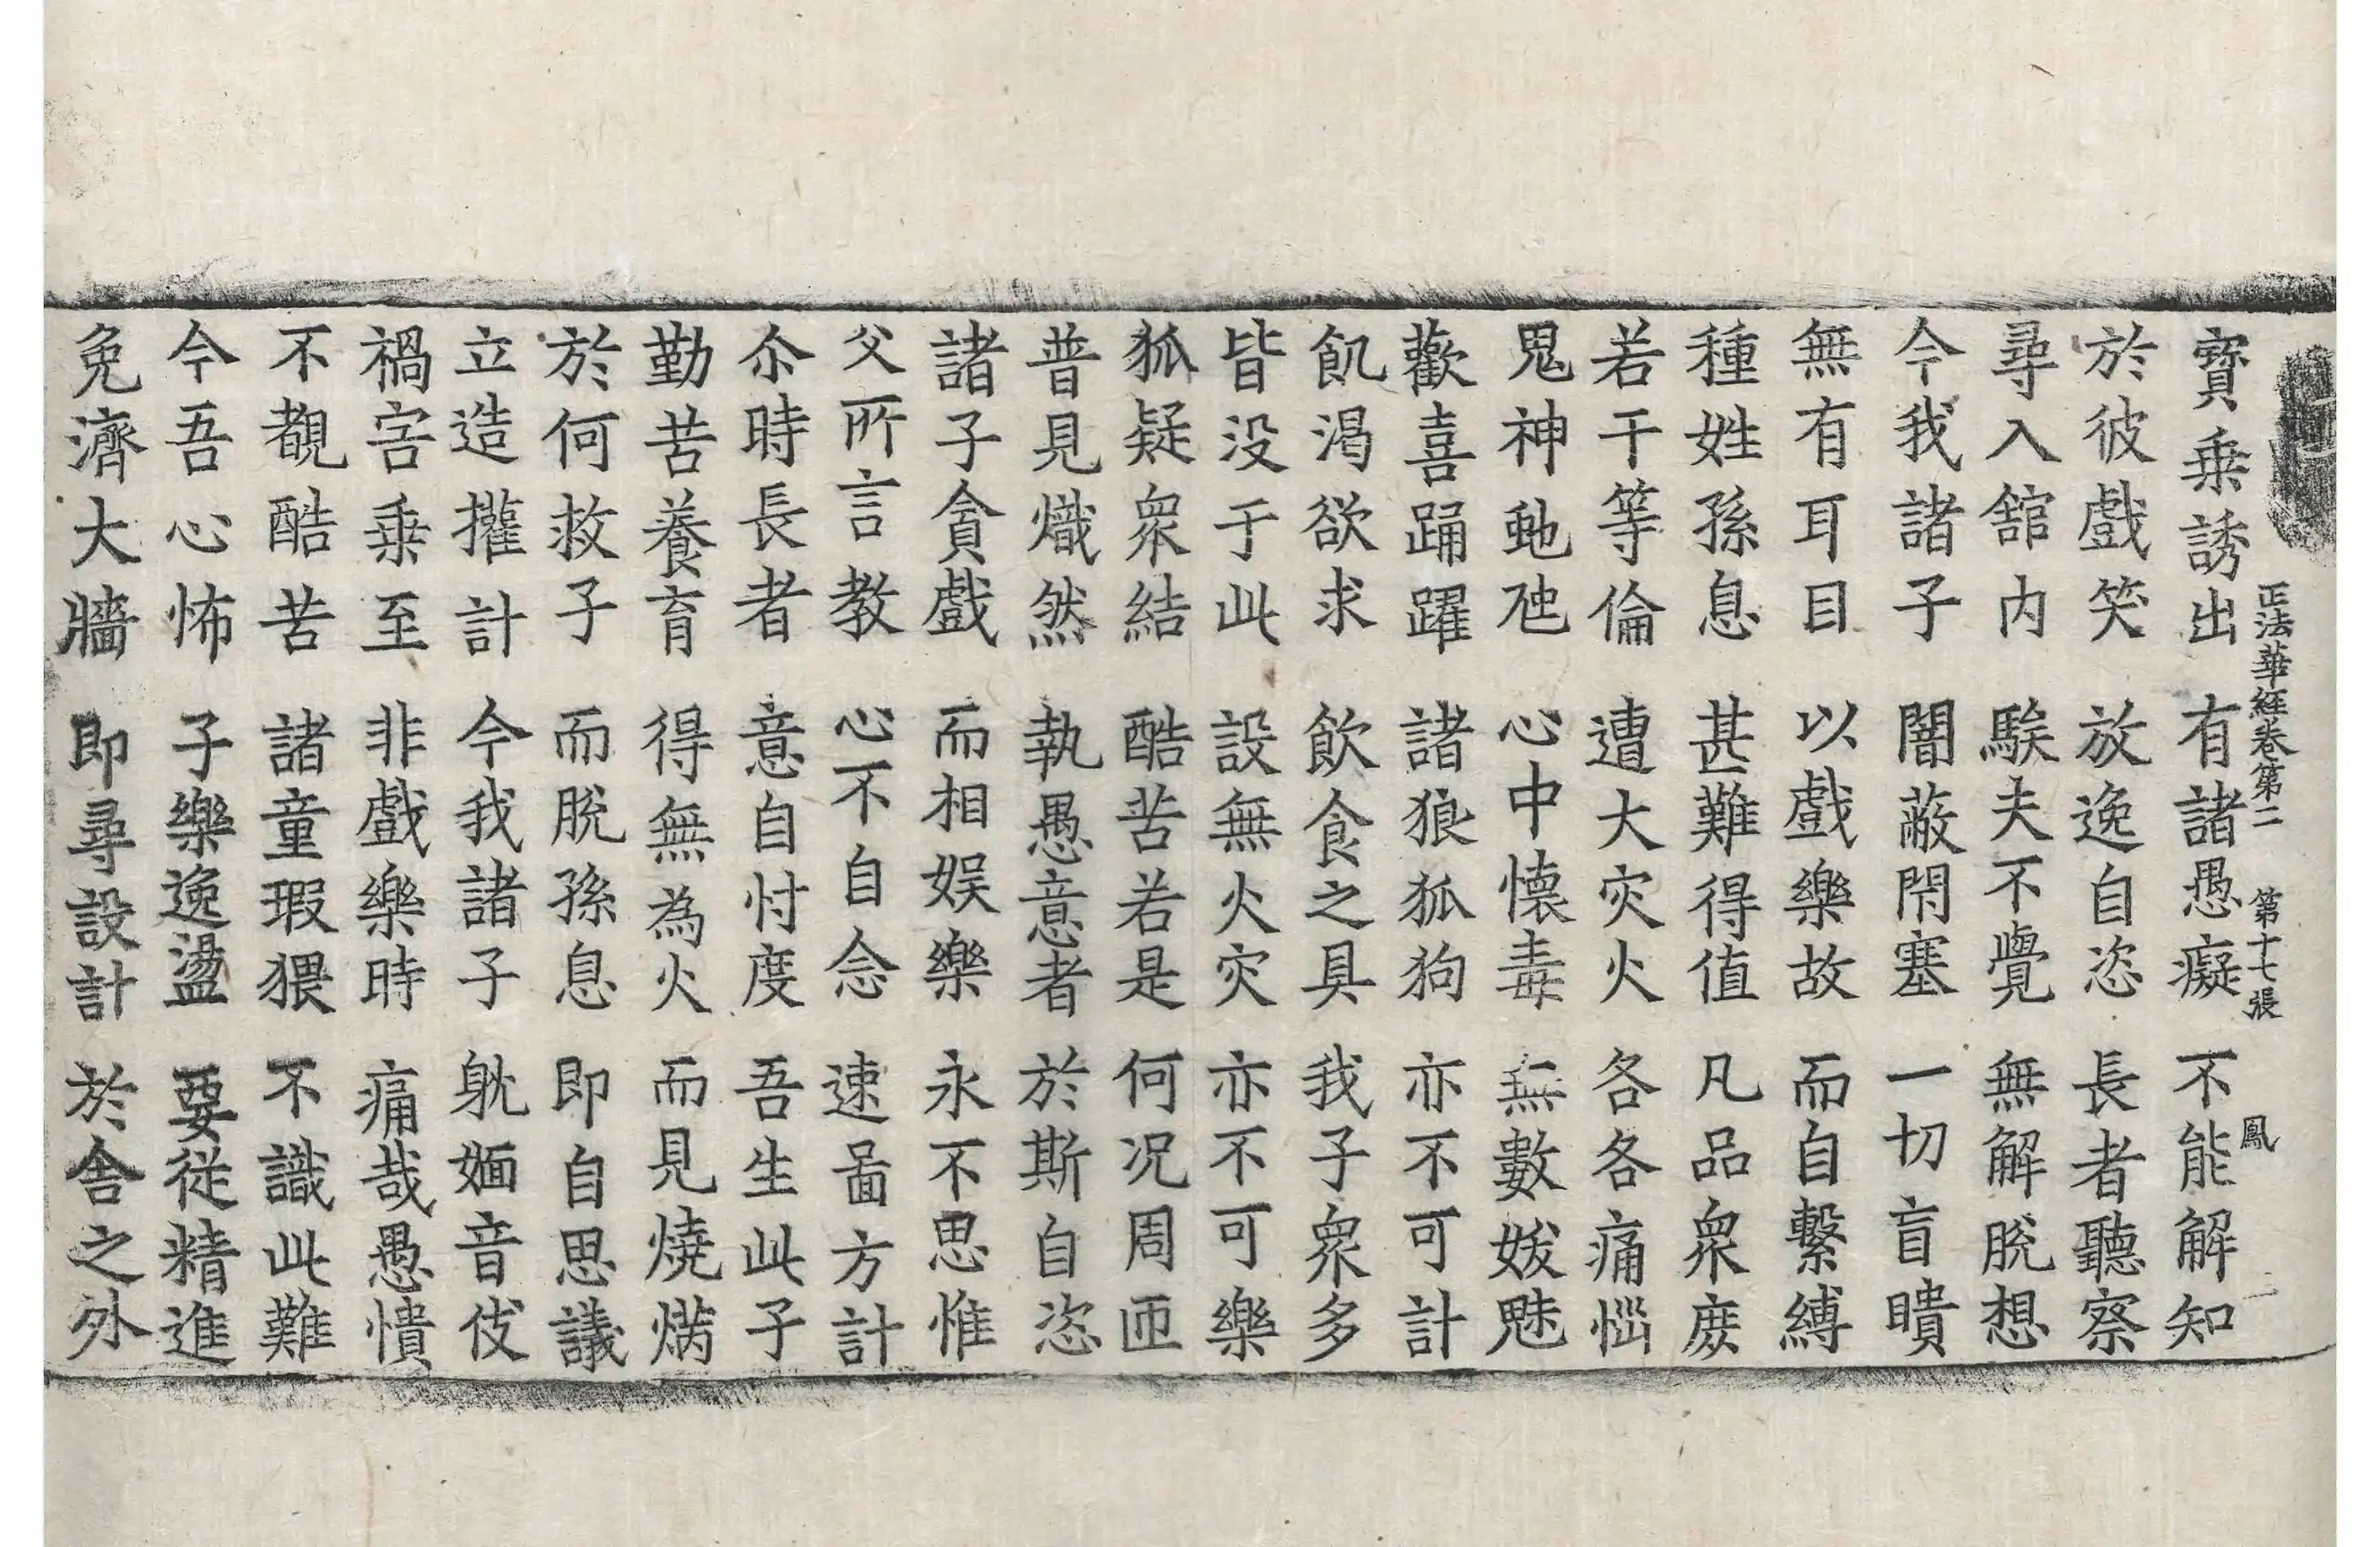 正法華經卷第二 第十七張 鳳
寶乗誘出 有諸愚癡 不能解知
於彼戲笑 放逸自恣 長者聽察
尋入舘内 騃夫不覺 無解脫想
今我諸子 闇蔽閇塞 一切盲瞶
無有耳目 以戲樂故 而自繫縛
種姓孫息 甚難得值 凡品衆庶
若干等倫 遭大灾火 各各痛惱
鬼神虵虺 心中懷毒 無數妭魅
歡喜踊躍 諸狼狐狗 亦不可計
飢渴欲求 飲食之具 我子衆多
皆没于此 設無火灾 亦不可樂
狐疑衆結 酷苦若是 何況周匝
普見熾然 執愚意者 於斯自恣
諸子貪戲 而相娛樂 永不思惟
父所言教 心不自念 速啚方計
尒時長者 意自忖度 吾生此子
勤苦養育 得無為火 而見燒㷶
於何救子 而脫孫息 即自思議
立造攉計 今我諸子 躭媔音伎
禍害乗至 非戲樂時 痛哉愚憒
不覩酷苦 諸童瑕猥 不識此難
今吾心怖 子樂逸盪 要從精進
免濟大牆 即尋設計 於舍之外